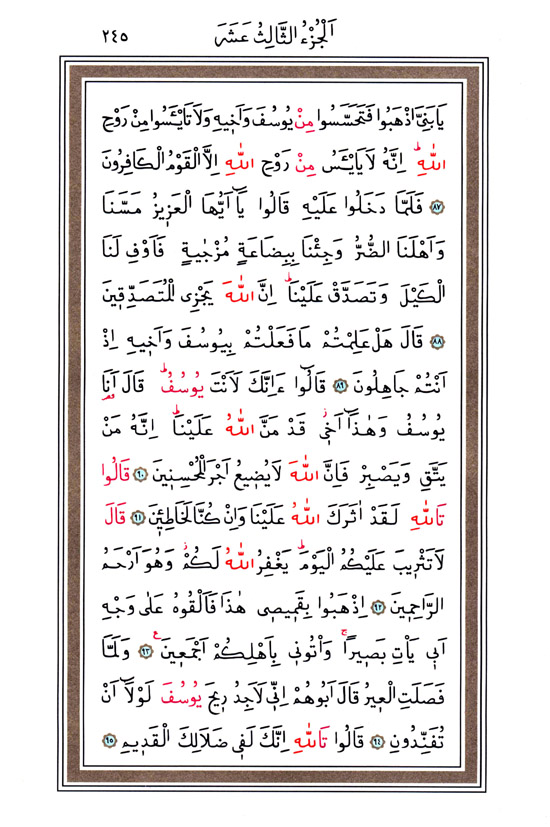 اَلْجُزْءُ الثَّالِثُ عَشَرَ ٢٤٥
يَا بَنِيَّ اذْهَبُوا فَتَحَسَّسُوا مِنْ يُوسُفَ وَاَخ۪يهِ وَلَا تَايْـَٔسُوا مِنْ رَوْحِ
اللّٰهِۜ اِنَّهُ لَا يَايْـَٔسُ مِنْ رَوْحِ اللّٰهِ اِلَّا الْقَوْمُ الْكَافِرُونَ
﴿٨٧﴾ فَلَمَّا دَخَلُوا عَلَيْهِ قَالُوا يَٓا اَيُّهَا الْعَز۪يزُ مَسَّنَا
وَاَهْلَنَا الضُّرُّ وَجِئْنَا بِبِضَاعَةٍ مُزْجٰيةٍ فَاَوْفِ لَنَا
الْكَيْلَ وَتَصَدَّقْ عَلَيْنَاۜ اِنَّ اللّٰهَ يَجْزِي الْمُتَصَدِّق۪ينَ
﴿٨٨﴾ قَالَ هَلْ عَلِمْتُمْ مَا فَعَلْتُمْ بِيُوسُفَ وَاَخ۪يهِ اِذْ
اَنْتُمْ جَاهِلُونَ ﴿٨٩﴾ قَالُٓوا ءَاِنَّكَ لَاَنْتَ يُوسُفُۜ قَالَ اَنَا۬
يُوسُفُ وَهٰذَٓا اَخ۪يۘ قَدْ مَنَّ اللّٰهُ عَلَيْنَاۜ اِنَّهُ مَنْ
يَتَّقِ وَيَصْبِرْ فَاِنَّ اللّٰهَ لَا يُض۪يعُ اَجْرَ الْمُحْسِن۪ينَ ﴿٩٠﴾ قَالُوا
تَاللّٰهِ لَقَدْ اٰثَرَكَ اللّٰهُ عَلَيْنَا وَاِنْ كُنَّا لَخَاطِـ۪ٔينَ ﴿٩١﴾ قَالَ
لَا تَثْر۪يبَ عَلَيْكُمُ الْيَوْمَۜ يَغْفِرُ اللّٰهُ لَكُمْۘ وَهُوَ اَرْحَمُ
الرَّاحِم۪ينَ ﴿٩٢﴾ اِذْهَبُوا بِقَم۪يص۪ي هٰذَا فَاَلْقُوهُ عَلٰى وَجْهِ
اَب۪ي يَاْتِ بَص۪يراًۚ وَاْتُون۪ي بِاَهْلِكُمْ اَجْمَع۪ينَ۟ ﴿٩٣﴾ وَلَمَّا
فَصَلَتِ الْع۪يرُ قَالَ اَبُوهُمْ اِنّ۪ي لَاَجِدُ ر۪يحَ يُوسُفَ لَوْلَٓا اَنْ
تُفَنِّدُونِ ﴿٩٤﴾ قَالُوا تَاللّٰهِ اِنَّكَ لَف۪ي ضَلَالِكَ الْقَد۪يمِ ﴿٩٥﴾